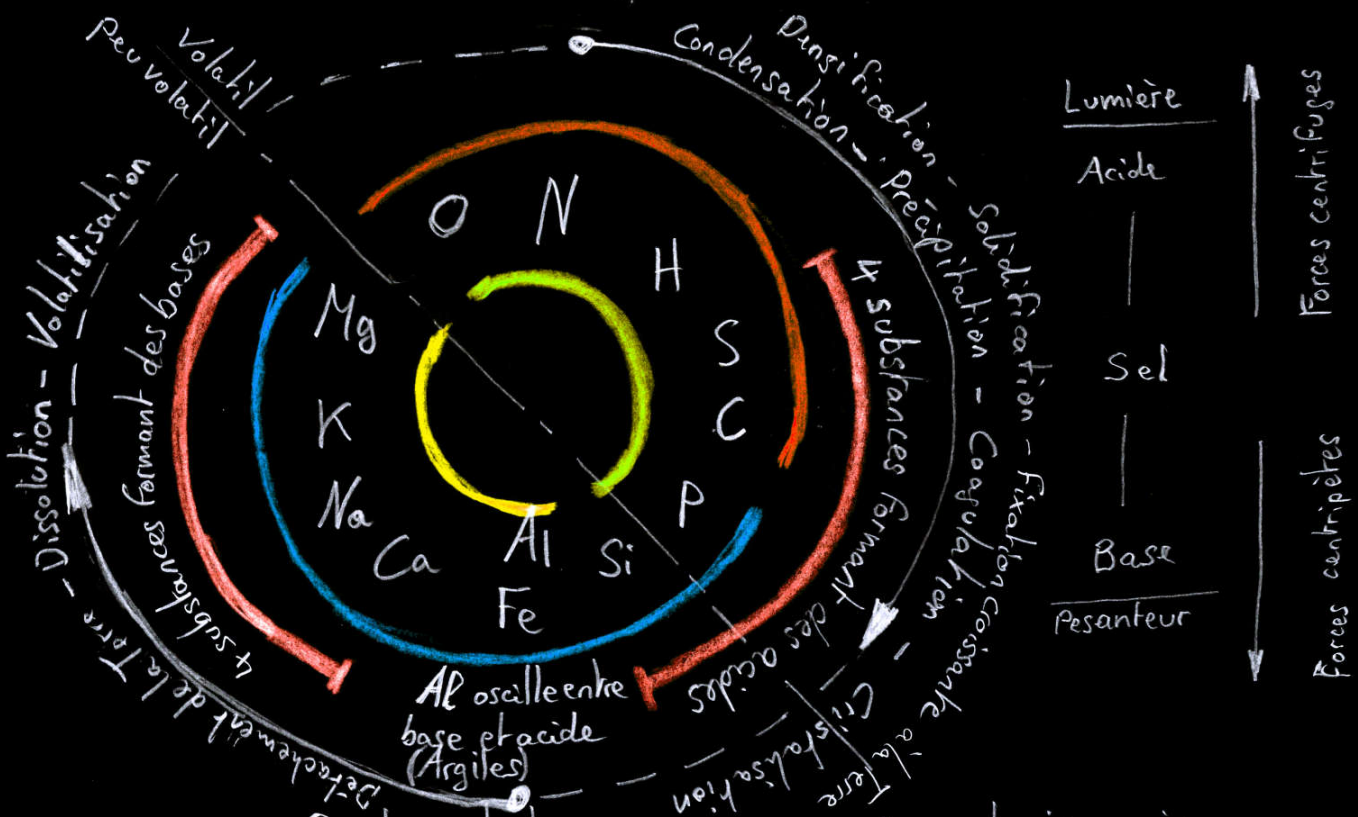 Volatil
Peu volatil
Densification - Solidification - Fixation croissante à la Terre
Condensation - Précipitation - Coagulation - Cristalisation
Détachement de la Terre - Dissolution - Volatilisation
4 substances formant des bases
4 substances formant des acides
O
N
H
S
C
P
Si
Al
Fe
Ca
Na
K
Mg
Al oscille entre
base et acide
(Argiles)
Lumière
Acide
Sel
Base
Pesanteur
Forces centrifuges
Forces centripètes